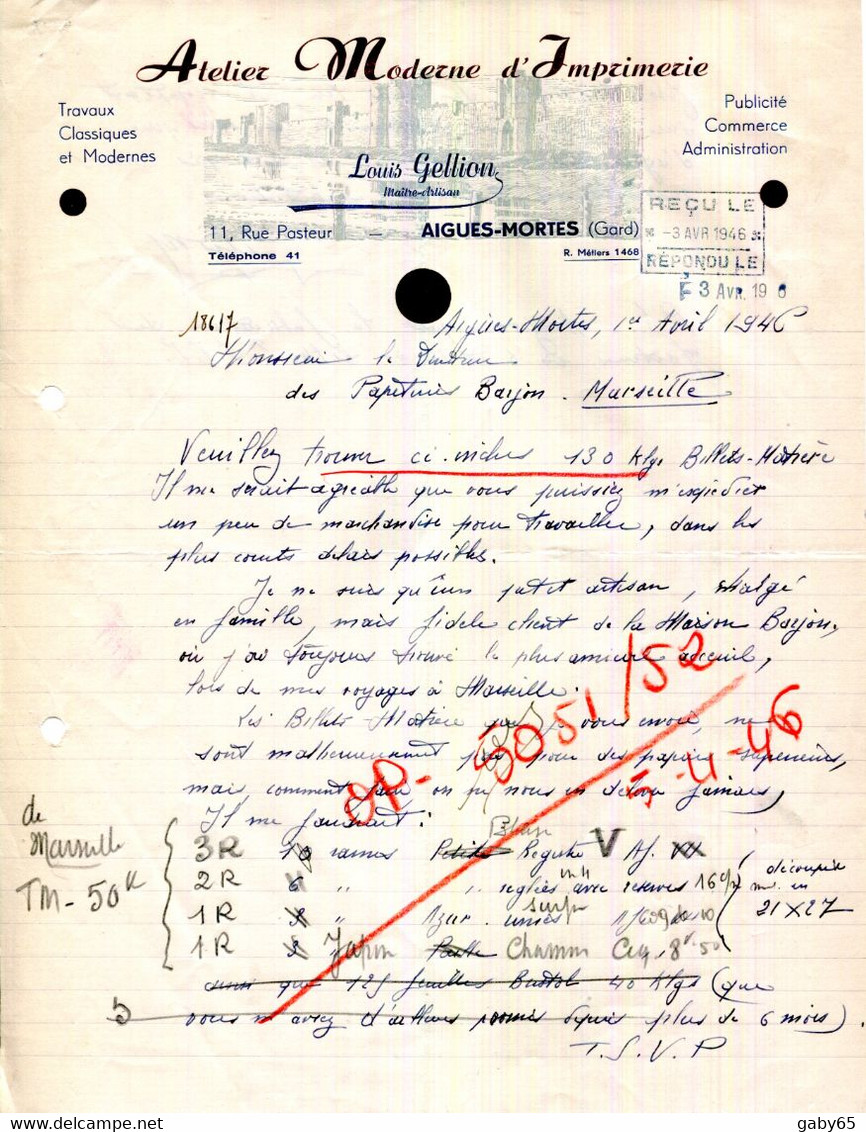 Atelier Moderne d'Imprimerie
Travaux
Classiques
et Modernes
Publicité
Commerce
Administration
Louis Gellion
Maître-Artisan
11, Rue Pasteur — AIGUES-MORTES (Gard)
Téléphone 41
R. Métiers 1468
REÇU LE
-3 AVR 1946
RÉPONDU LE
F 3 AVR. 19 6
18617
Aigues-Mortes, 1er Avril 1946
Monsieur le Directeur
des Papeteries Barjon. Marseille
Veuillez trouver ci-inclus 130 Klgs Billets-Matière
Il me serait agréable que vous puissiez m'expédier
un peu de marchandise pour travailler, dans les
plus courts délais possibles.
Je ne suis qu'un petit artisan, chargé
en famille, mais fidèle client de la Maison Barjon,
où j'ai toujours trouvé le plus amical accueil,
lors de mes voyages à Marseille.
Les Billets-Matière que je vous envoie, ne
sont malheureusement pas pour des papiers supérieurs,
mais, comment faire on ne nous en délivre jamais,
OP- 5051/52
5-4-46
Il me faudrait :
de
Marseille
TM-50K
3R 10 rames Registre V AF.
2R 6 " " réglées avec réserves 16
1R " Azur. unies
1R Japon Chamois 8
découpée
en
21 X 27
ainsi que 125 feuilles Bristol 40 Klgs (que
vous m'aviez d'ailleurs promis depuis plus de 6 mois).
T.S.V.P
gaby65